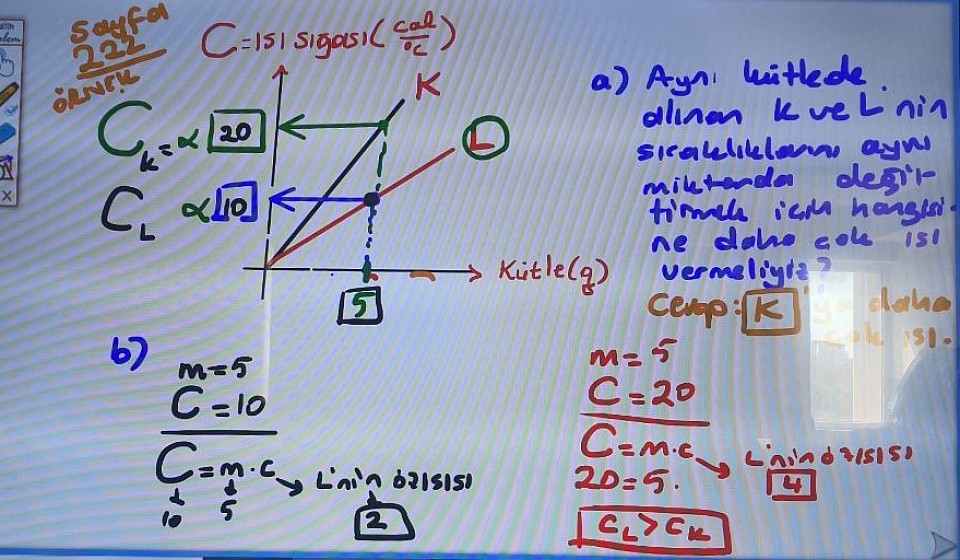 Sayfa
222
ÖRNEK
C=ısı sığası(cal/°C)
K
L
C_K = α 20
C_L α 10
5
Kütle(g)
a) Aynı kütlede
alınan K ve L nin
sıcaklıklarını aynı
miktarda değiş-
tirmek için hangisi-
ne daha çok ısı
vermeliyiz?
Cevap: K 'ya daha
çok ısı.
b)
m=5
C=10
C=m.c
10 5
L'nin özısısı
2
m=5
C=20
C=m.c
20=5.
L'nin özısısı
4
c_L>c_K